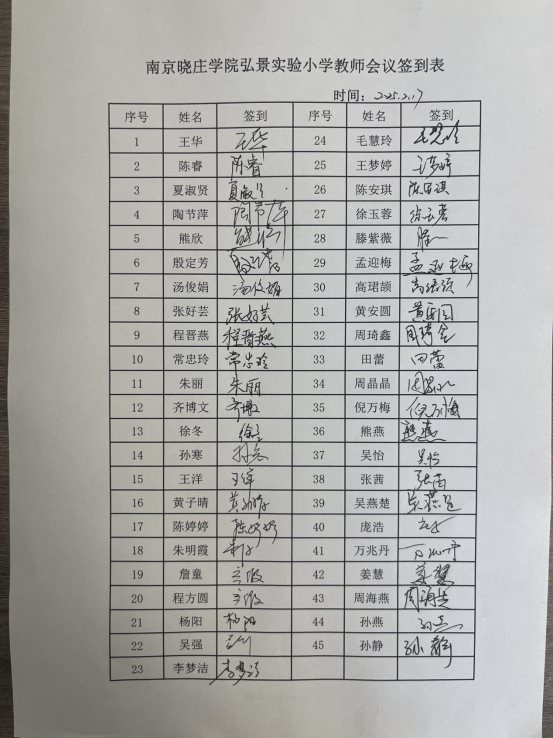 南京晓庄学院弘景实验小学教师会议签到表
时间：2025.2.17
序号 姓名 签到 序号 姓名 签到
1 王华 王华 24 毛慧玲 毛慧玲
2 陈睿 陈睿 25 王梦婷 王梦婷
3 夏淑贤 26 陈安琪 陈安琪
4 陶节萍 陶节萍 27 徐玉蓉
5 熊欣 28 滕紫薇
6 殷定芳 29 孟迎梅 孟迎梅
7 汤俊娟 汤俊娟 30 高珺颉
8 张好芸 张好芸 31 黄安圆 黄安圆
9 程晋燕 程晋燕 32 周琦鑫
10 常忠玲 常忠玲 33 田蕾 田蕾
11 朱丽 朱丽 34 周晶晶
12 齐博文 35 倪万梅 倪万梅
13 徐冬 徐冬 36 熊燕 熊燕
14 孙寒 37 吴怡 吴怡
15 王洋 王洋 38 张茜 张茜
16 黄子晴 39 吴燕楚
17 陈婷婷 陈婷婷 40 庞浩
18 朱明霞 41 万兆丹
19 詹童 42 姜慧 姜慧
20 程方圆 43 周海燕
21 杨阳 杨阳 44 孙燕
22 吴强 45 孙静 孙静
23 李梦洁 李梦洁